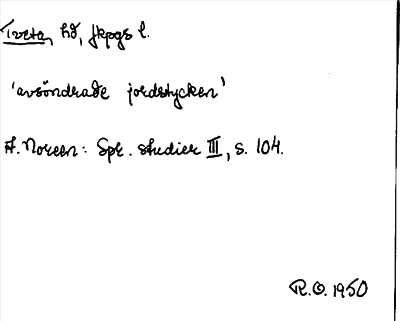 Tveta, hd, Jkpgs l.
'avsöndrade jordstycken'
A. Noreen: Spr. studier III, s. 104.
R.O. 1950